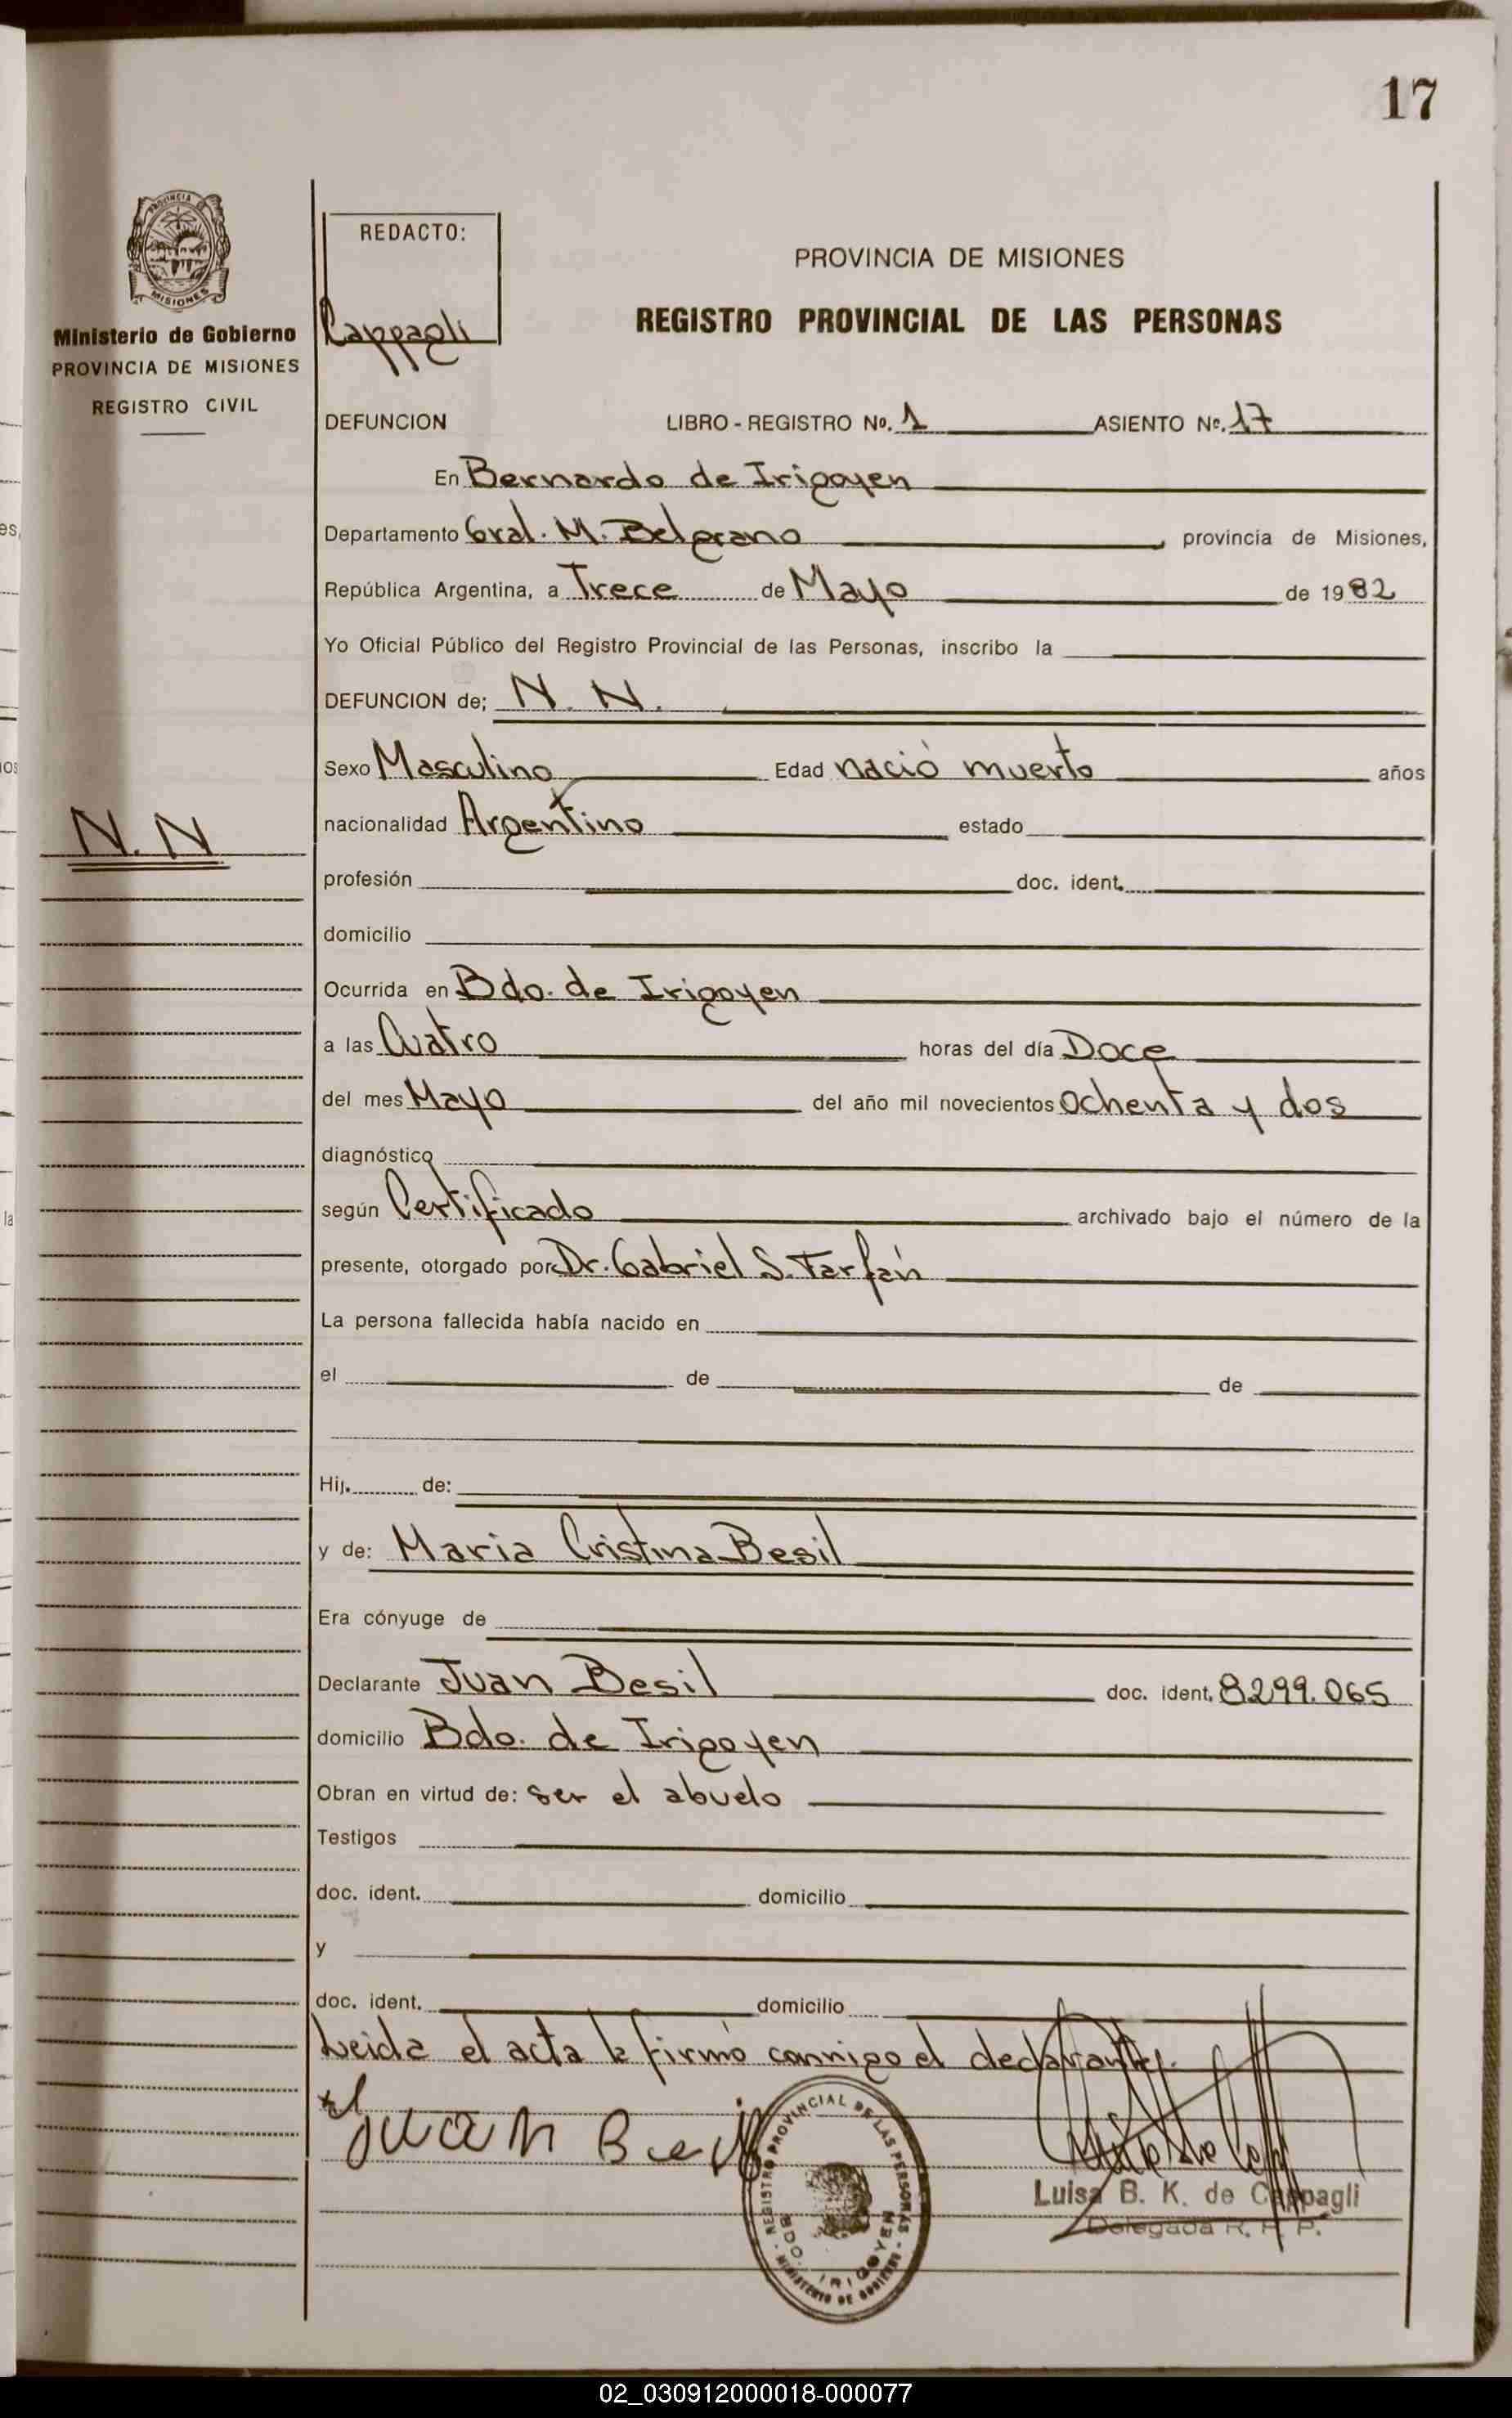 17
PROVINCIA
MISIONES
Ministerio de Gobierno
PROVINCIA DE MISIONES
REGISTRO CIVIL
N.N
REDACTO:
Cappagli
PROVINCIA DE MISIONES
REGISTRO PROVINCIAL DE LAS PERSONAS
DEFUNCION LIBRO - REGISTRO No. 1 ASIENTO No. 17
En Bernardo de Irigoyen
Departamento Gral. M. Belgrano, provincia de Misiones,
República Argentina, a Trece de Mayo de 1982
Yo Oficial Público del Registro Provincial de las Personas, inscribo la
DEFUNCION de; N. N.
Sexo Masculino Edad nació muerto años
nacionalidad Argentino estado
profesión doc. ident.
domicilio
Ocurrida en Bdo. de Irigoyen
a las Cuatro horas del día Doce
del mes Mayo del año mil novecientos ochenta y dos
diagnóstico
según Certificado archivado bajo el número de la
presente, otorgado por Dr. Gabriel S. Farfán
La persona fallecida había nacido en
el de de
Hij. de:
y de: Maria Cristina Besil
Era cónyuge de
Declarante Juan Besil doc. ident. 8299.065
domicilio Bdo. de Irigoyen
Obran en virtud de: ser el abuelo
Testigos
doc. ident. domicilio
y
doc. ident. domicilio
Leida el acta la firmó conmigo el declarante.
Juan
REGISTRO PROVINCIAL DE LAS PERSONAS
BDO. IRIGOYEN
MINISTERIO DE GOBIERNO
Luisa B. K. de Cappagli
Delegada R. P. P.
02_030912000018-000077